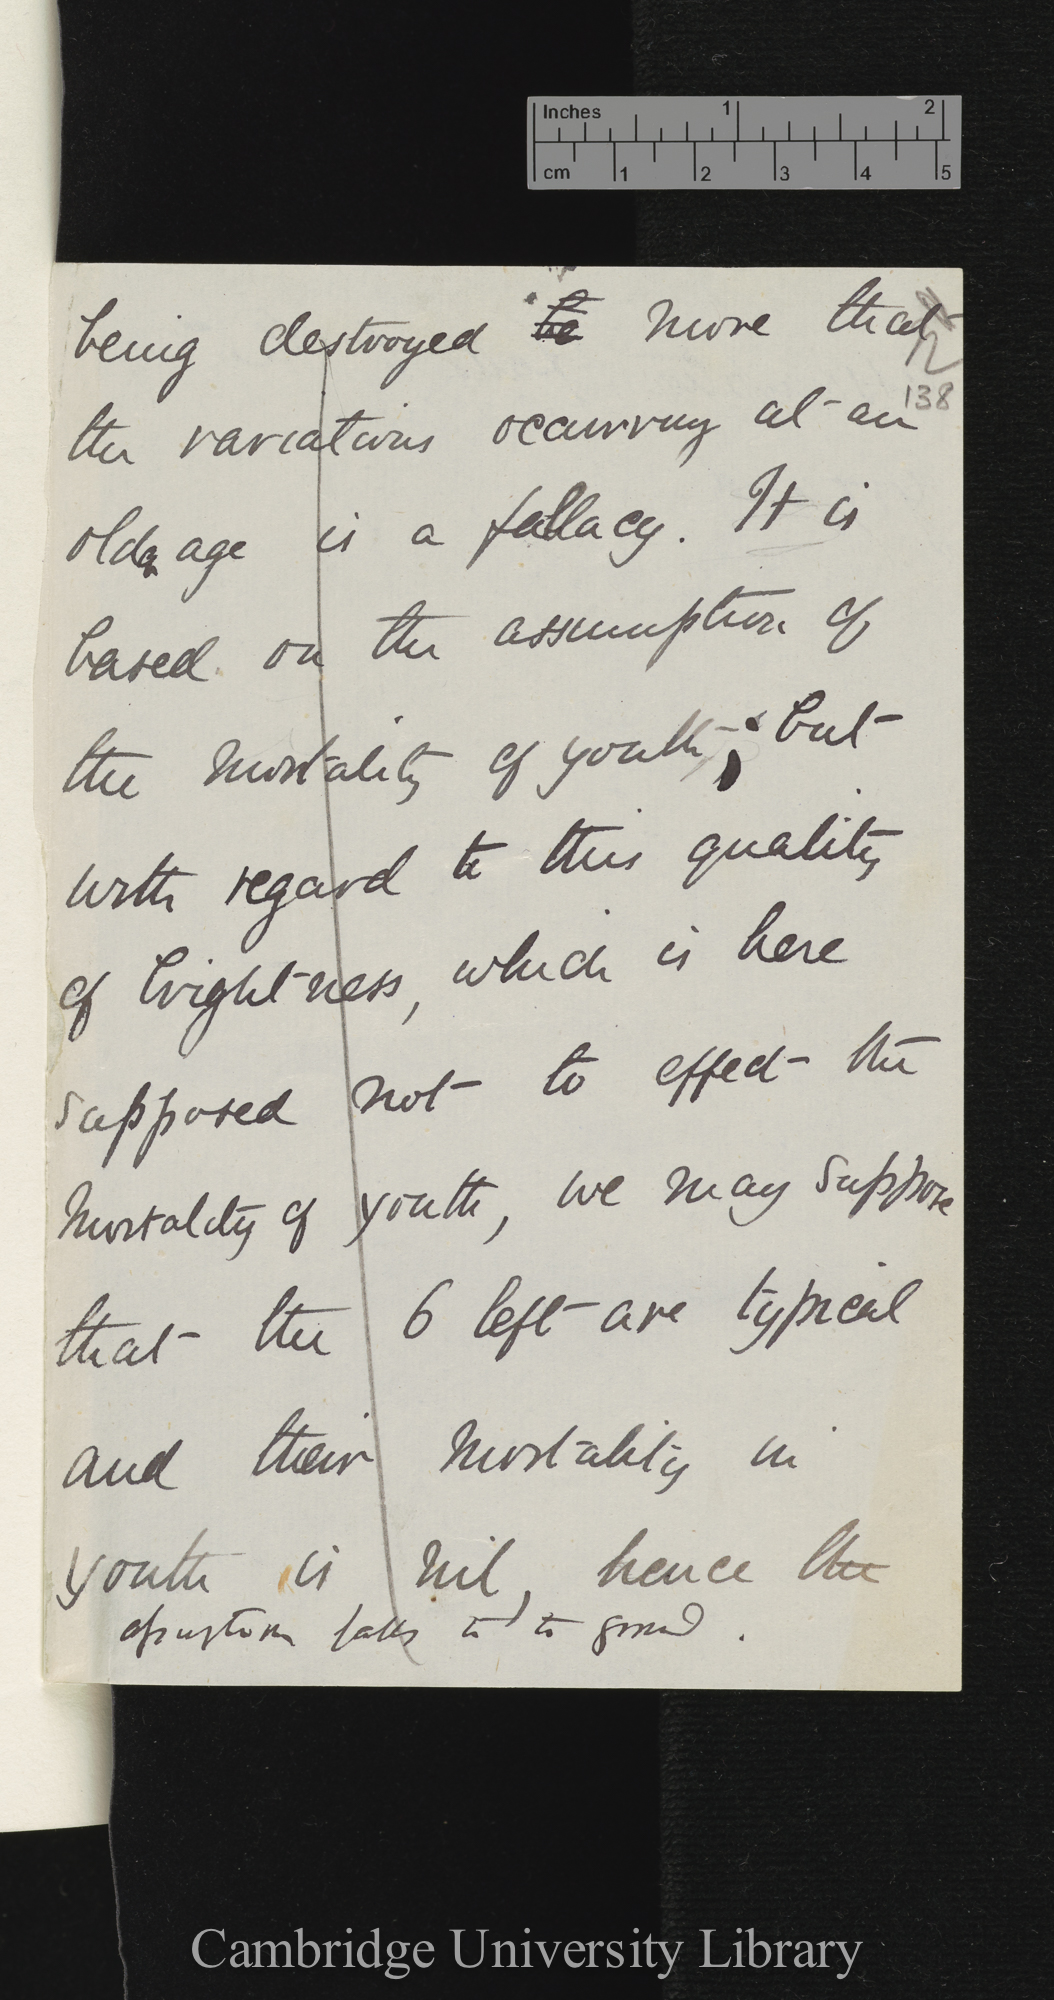 Inches 1 2
cm 1 2 3 4 5
12
138
being destroyed be more that
the variations occurring at an
older age is a fallacy. It is
based on the assumption of
the mortality of youth; but
with regard to this quality
of brightness, which is here
supposed not to effect the
mortality of youth, we may suppose
that the 6 left are typical
and their mortality in
youth is nil, hence the
falls to to ground.
Cambridge University Library